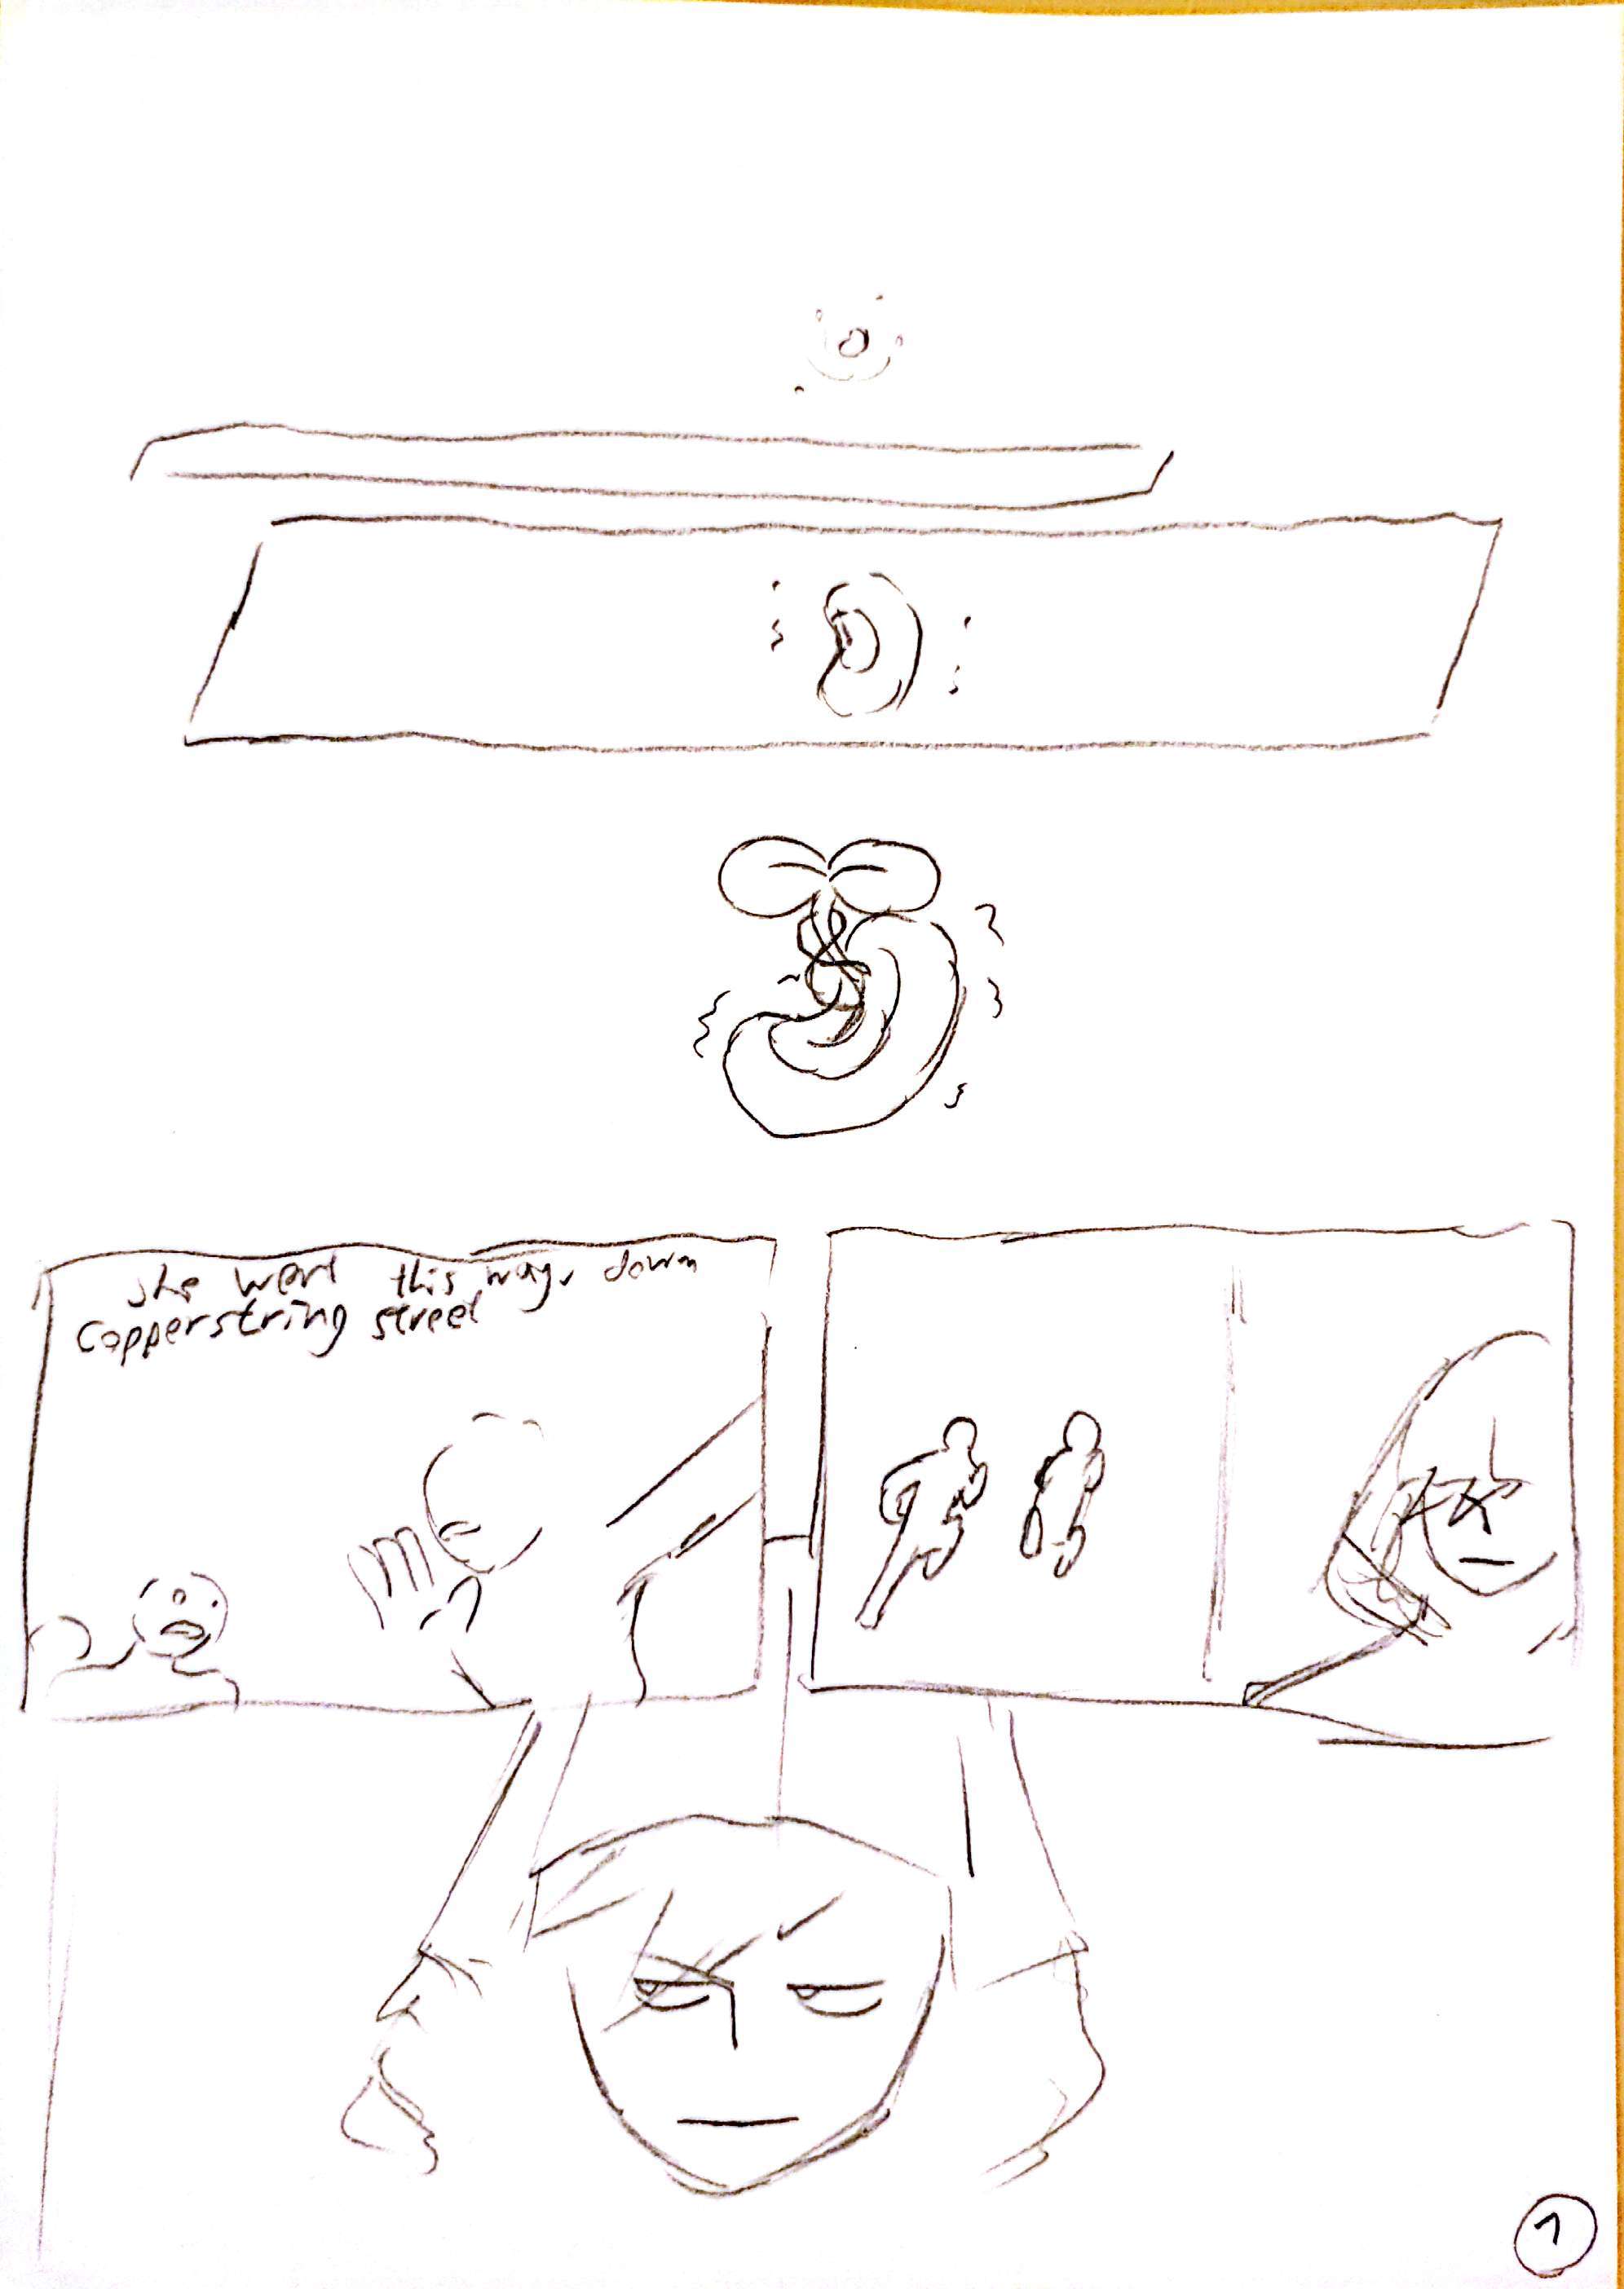 she went this way, down
Copperstring street
1